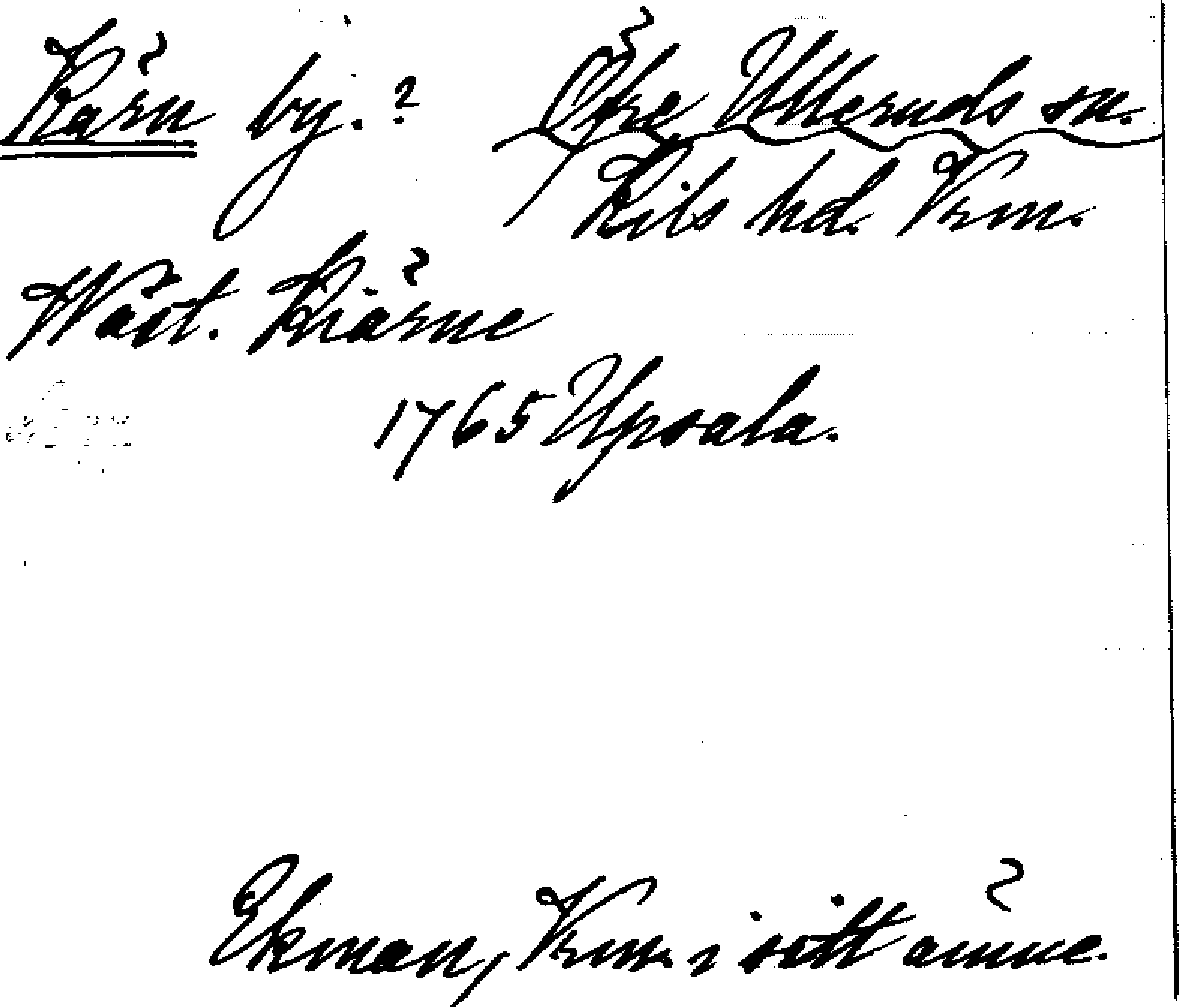 Kärn by.? Övre Ulleruds sn.
Kils hd. Vrm.
Wäst. Kiärne
1765 Upsala.
Ekman, Vrm. i sitt ämne.